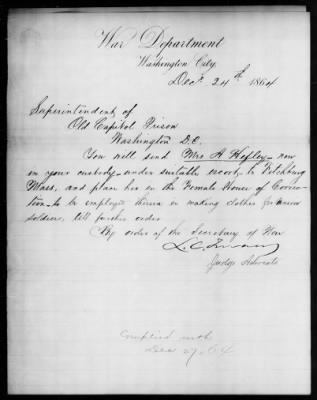 War Department
Washington City,
Decr. 24th 1864
Superintendent of
Old Capitol Prison
Washington D.C.
You will send Mrs A. Hefley - now
in your custody - under suitable escort, to Fitchburg
Mass, and place her in the Female House of Correc-
tion - to be employed therein in making clothes for
soldiers, till further order
By order of the Secretary of War
L. C. Turner
Judge Advocate
Complied with
Dec 27, 64